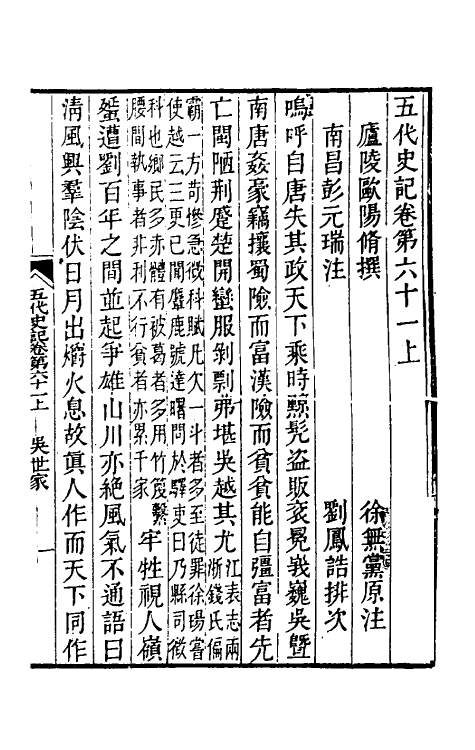 五代史記卷第六十一上
廬陵歐陽脩撰　徐無黨原注
南昌彭元瑞注　劉鳳誥排次
嗚呼自唐失其政天下乘時黥髡盜販衮冕峩巍吳暨
南唐姦豪竊攘蜀險而富漢險而貧貧能自彊富者先
亡閩陋荆蹙楚開蠻服剝剽弗堪吳越其尤
江表志兩
浙錢氏偏
霸一方苛慘急徵科賦凡欠一斗者多至徒罪徐瑒嘗
使越云三更已聞麞鹿號達曙問於驛吏曰乃縣司徵
科也鄉民多赤體有被葛者多用竹篾繫
腰間執事者非利不行貧者亦累千家
牢牲視人嶺
蜑遭劉百年之間並起爭雄山川亦絶風氣不通語曰
清風興羣陰伏日月出爝火息故眞人作而天下同作
五代史記卷第六十一上　吳世家　一